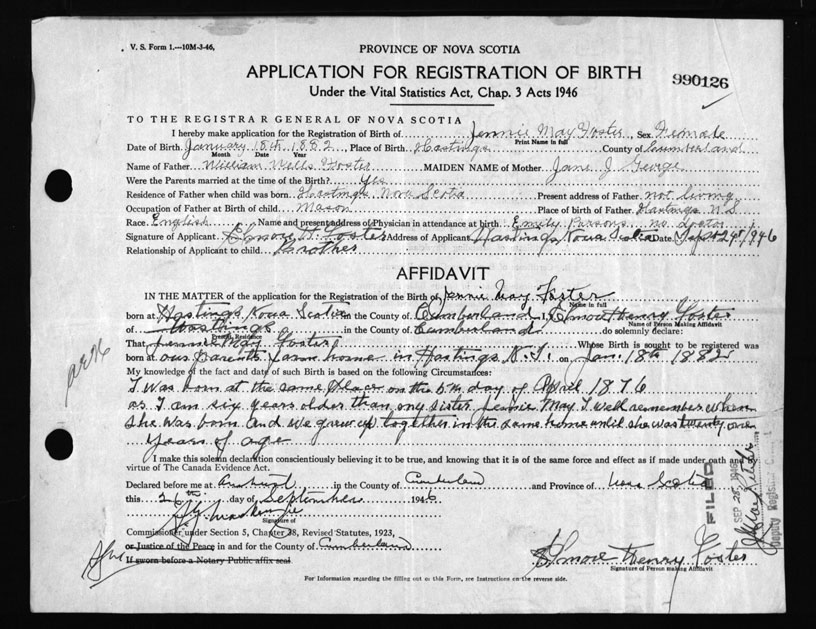 V. S. Form 1.—10M-3-46,
PROVINCE OF NOVA SCOTIA
APPLICATION FOR REGISTRATION OF BIRTH
990126
Under the Vital Statistics Act, Chap. 3 Acts 1946
TO THE REGISTRAR GENERAL OF NOVA SCOTIA
I hereby make application for the Registration of Birth of Jennie May Foster, Sex Female
Print Name in full
Date of Birth January 18th 1882, Place of Birth Hastings County of Cumberland
Month Date Year
Name of Father William Wells Foster MAIDEN NAME of Mother Jane J George
Were the Parents married at time of the Birth? Yes
Residence of Father when child was born Hastings Nova Scotia Present address of Father not living
Occupation of Father at Birth of child Mason Place of birth of Father Hastings N.S
Race English Name and present address of Physician in attendance at birth Emily Parsons no doctor
Signature of Applicant Elmore H. Foster Address of Applicant Hastings Nova Scotia Date Sept 24th, 1946
Relationship of Applicant to child Brother
AFFIDAVIT
IN THE MATTER of the application for the Registration of the Birth of Jennie May Foster
Name in full
born at Hastings Nova Scotia in the County of Cumberland I, Elmore Henry Foster
Name of Person Making Affidavit
of Hastings in the County of Cumberland do solemnly declare:
Present Residence
That Jennie May Foster Whose Birth is sought to be registered was
born at our Parents farm home in Hastings N.S. on Jan. 18th 1882
My knowledge of the fact and date of such Birth is based on the following Circumstances:
I was born at the same place on the 5th day of April 1876
as I am six years older than my sister Jennie May I well remember when
she was born and we grew up together in the same home until she was twenty one
years of age
I make this solemn declaration conscientiously believing it to be true, and knowing that it is of the same force and effect as if made under oath and by
virtue of The Canada Evidence Act.
Declared before me at Amherst in the County of Cumberland and Province of Nova Scotia
this 26th day of September 1946
Signature of
Commissioner under Section 5, Chapter 38, Revised Statutes, 1923,
or Justice of the Peace in and for the County of Cumberland
If sworn before a Notary Public affix seal
Elmore Henry Foster
Signature of Person making Affidavit
For Information regarding the filling out of this Form, see Instructions on the reverse side.
FILED
SEP 28 1946
Deputy Registrar